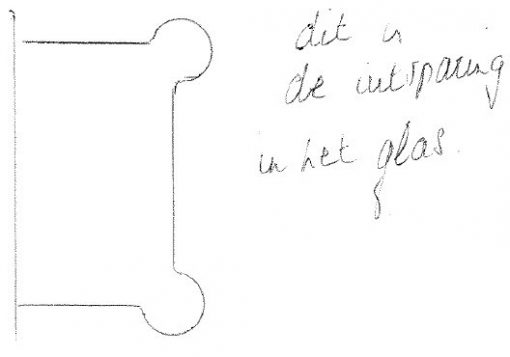 dit is
de intsparing
in het glas.